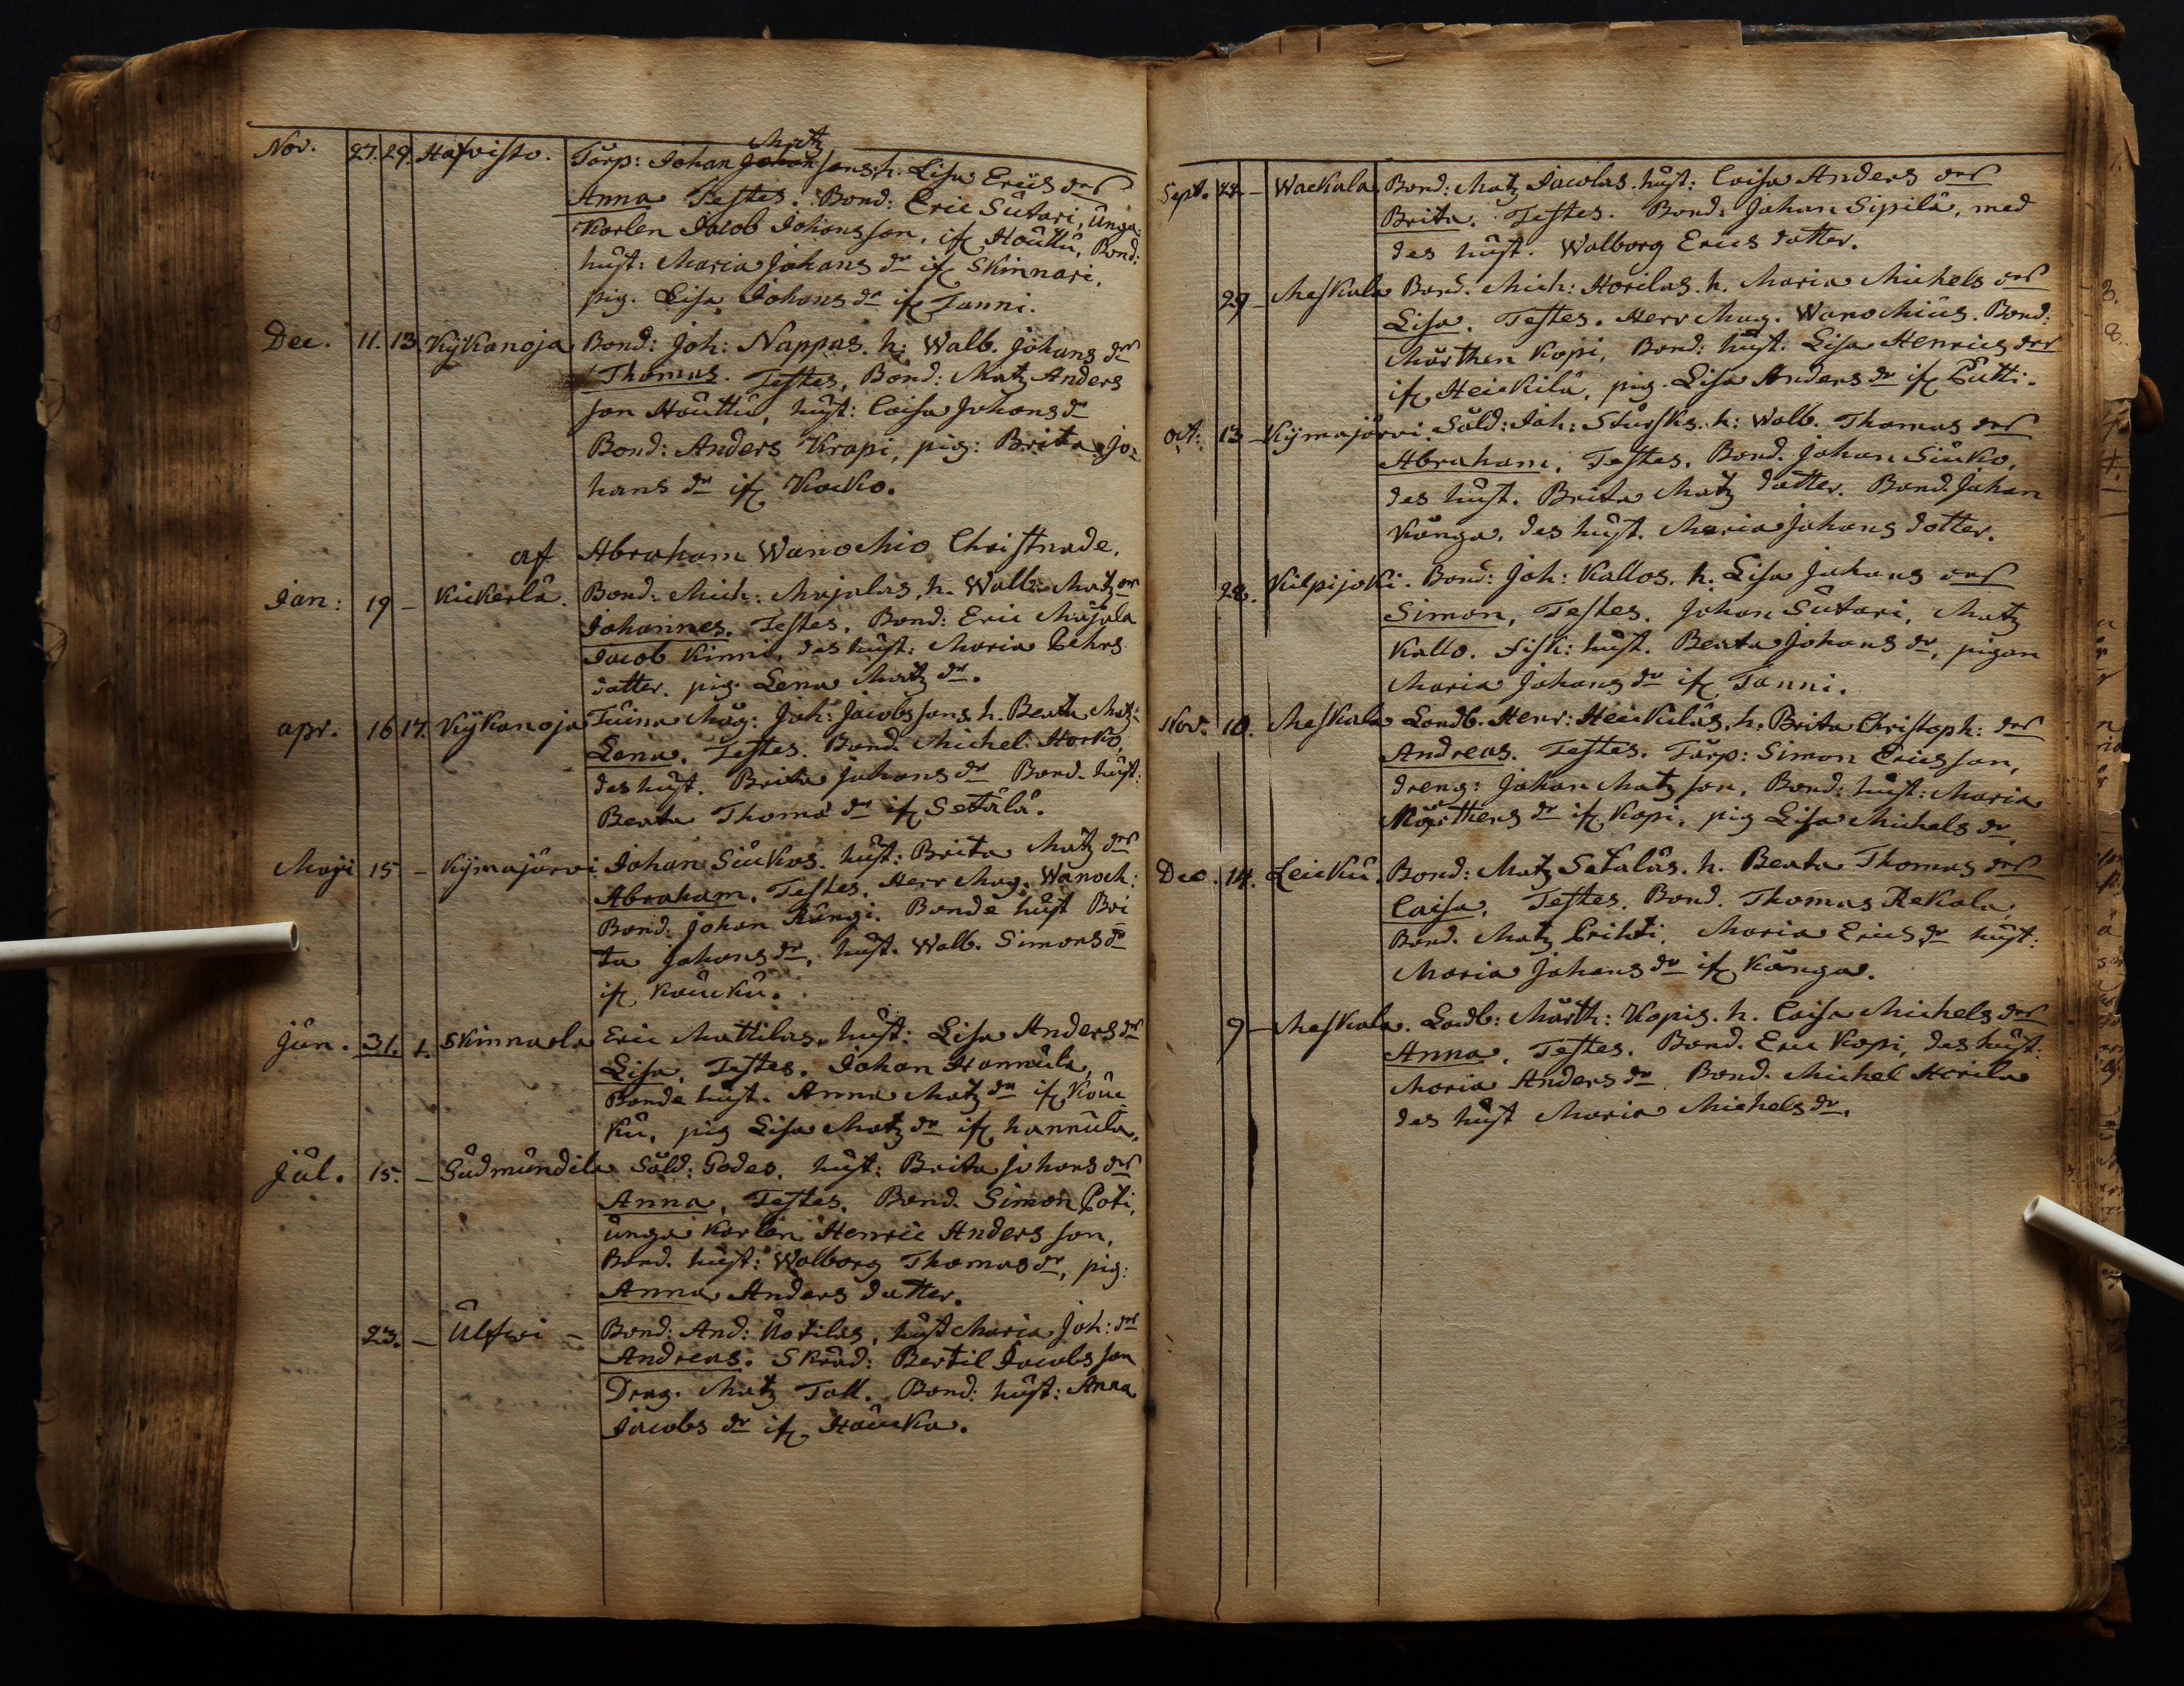 Matz
Nov. 27. 29. Hafvisto. Torp: Johan Johan sons h. Lisa Erics dr
Anna Testes. Bond: Eric Sutari, unga
Karlen Jacob Johansson, if. Houttu, Bond:
hust: Maria Johans dr if Skinnari,
pig. Lisa Johans dr if Tanni.
Dec. 11. 13. Kÿkanoja Bond: Joh: Nappas. h: Walb. Johans dr
Thomas. Testes, Bond: Matz Anders
son Houttu, hust: Caisa Johans dr
Bond: Anders Krapi, pig: Brita Jo:
hans dr if Kocko.
af Abraham Wanochio Christnade.
Jan: 19 – Kickerlä. Bond: Mich: Majalas, h. Walb. Matz dr
Johannes. Testes. Bond: Eric Majala
Jacob Kinni, des hust: Maria
datter. pig. Lena Matz dr.
apr. 16 17. Kÿkanoja Mag: Joh: Jacobs sons h. Beata Matz:
Lena. Testes. Bond. Michel Horko,
des hust. Brita Johans dr Bond. hust:
Beata Thoma dr if Setälä.
Maji 15 – Kÿmajärvi Johan Siukos. hust: Brita Matz dr
Abraham. Testes. Herr Mag. Wanoch:
Bond: Johan Kångi. Bonde hust Bri
ta Johans dr, hust. Walb. Simons dr
if Koucku.
Jun. 31. 1. Skinnarla Eric Mattilas, hust: Lisa Anders dr
Lisa. Testes. Johan Hannula,
Bonde hust. Anna Matz dr if Kouc
ku, pig Lisa Matz dr if hannula.
Jul. 15. – Gudmundila Sold: Godes. hust: Brita Johans dr
Anna, Testes. Bond. Simon Poti,
unga karlen Henric Anders son,
Bond. hust: Walborg Thomas dr, pig:
Anna Anders datter.
23. – Ulfwi – Bond: And: Notilas, hust Maria Joh: dr
Andreas. Skräd: Bertil Jacobs son
Dreng. Matz Tall. Bond: hust: Anna
Jacobs dr if. Haucka.
Sept. 22. – Wackala. Bond: Matz Jacolas. hust: Caisa Anders dr
Brita. Testes. Bond: Johan Sipilä, med
des hust. Walborg Erics datter.
29 – Meskala Bond. Mich: Horilas. h. Maria Michels dr
Lisa. Testes. Herr Mag. Wanochius. Bond:
Mårthen Kopi, Bond: hust. Lisa Henrics dr
if Heickilä, pig. Lisa Anders dr if Putti.
oct: 13 – Kÿmajärvi. Sold: Joh: Sturfks. h: Walb. Thomas dr
Abraham. Testes. Bond. Johan Siuko,
des hust. Brita Matz datter. Bond. Johan
Kånga, des hust. Maria Johans dotter.
28. Kilpijoki. Bond: Joh: Kallos. h. Lisa Johans dr
Simon, Testes. Johan Sutari, Matz
Kallo. hust. Beata Johans dr, pigan
Maria Johans dr if Tanni.
Nov. 10. Meskala Landb. Henr: Heickiläs, h. Brita Christoph: dr
Andreas. Testes. Torp: Simon Erics son,
dreng: Johan Matz son, Bond: hust: Maria
Mårthens dr if Kopi, pig Lisa Michels dr
Dec. 14. Leicku. Bond: Matz Setäläs. h. Beata Thomas dr
Caisa, Testes. Bond. Thomas Rekola,
Bond. Matz Prihti, Maria Erics dr hust:
Maria Johans dr if Kånga.
9 – Meskala. Landb: Mårth: Kopis. h. Caisa Michels dr
Anna, Testes. Bond. Eric Kopi, des hust:
Maria Anders dr. Bond. Michel Horila
des hust Maria Michels dr.